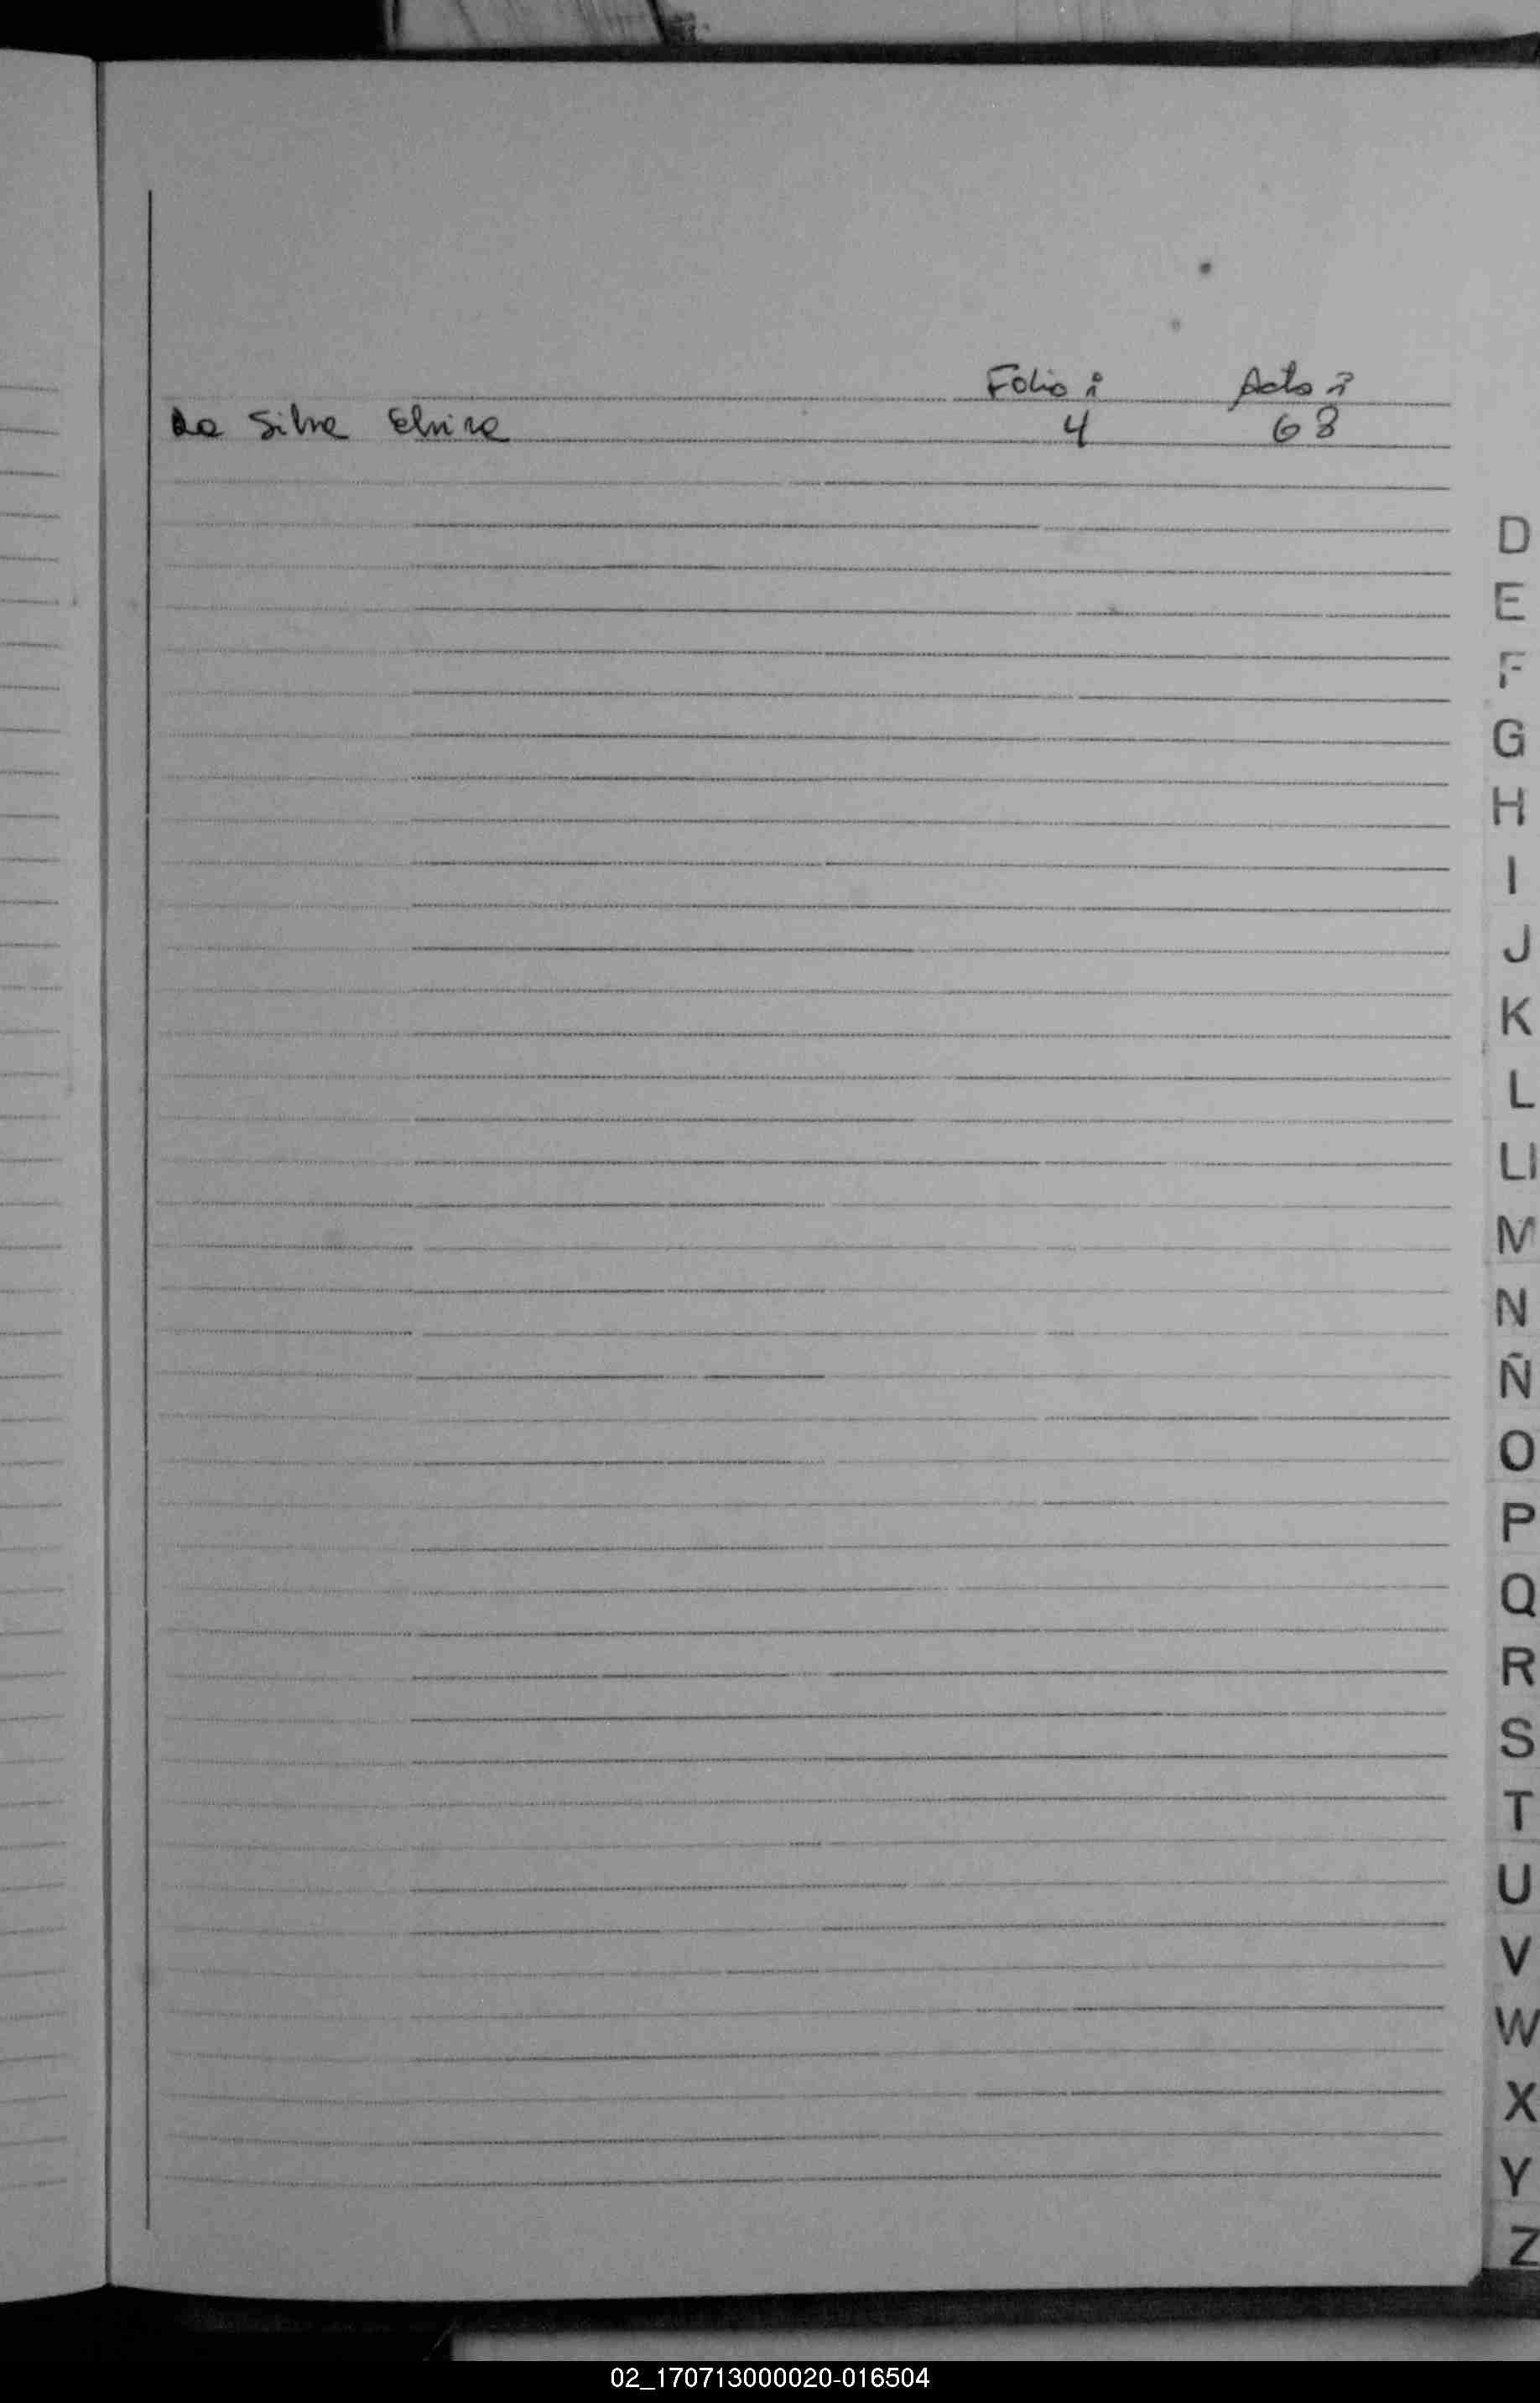 Folio n° Acta n°
Da Silva Elvira 4 68
D
E
F
G
H
I
J
K
L
Ll
M
N
Ñ
O
P
Q
R
S
T
U
V
W
X
Y
Z
02_170713000020-016504